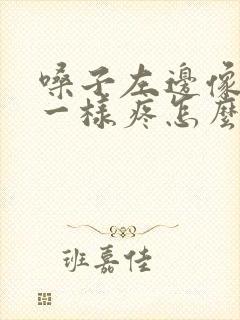 嗓子左邊像
一樣疼怎麼
班嘉佳